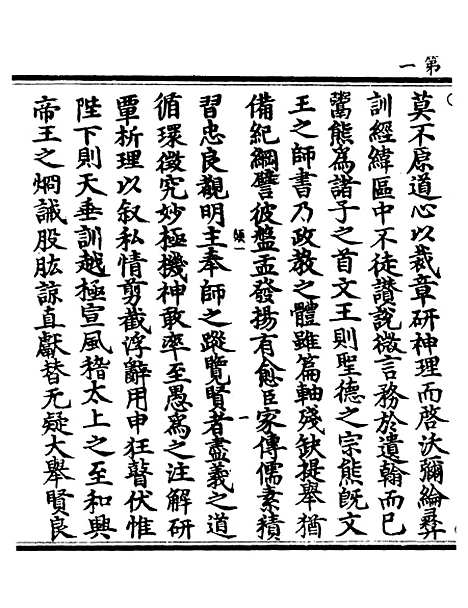 第一
莫不原道心以裁章研神理而啓沃彌綸彛
訓經緯區中不徒讃說微言務於遺翰而已
鬻熊爲諸子之首文王則聖德之宗熊旣文
王之師書乃政教之體雖篇軸殘缺提舉猶
備紀綱譬彼盤盂發揚有愈臣家傳儒素積
習忠良觀明主奉師之蹤覽賢者盡義之道
循環徵究妙極機神敢率至愚爲之注解研
覃析理以叙私情剪截浮辭用申狂瞽伏惟
陛下則天垂訓越極宣風稽太上之至和興
帝王之烱誡股肱諒直獻替无疑大舉賢良